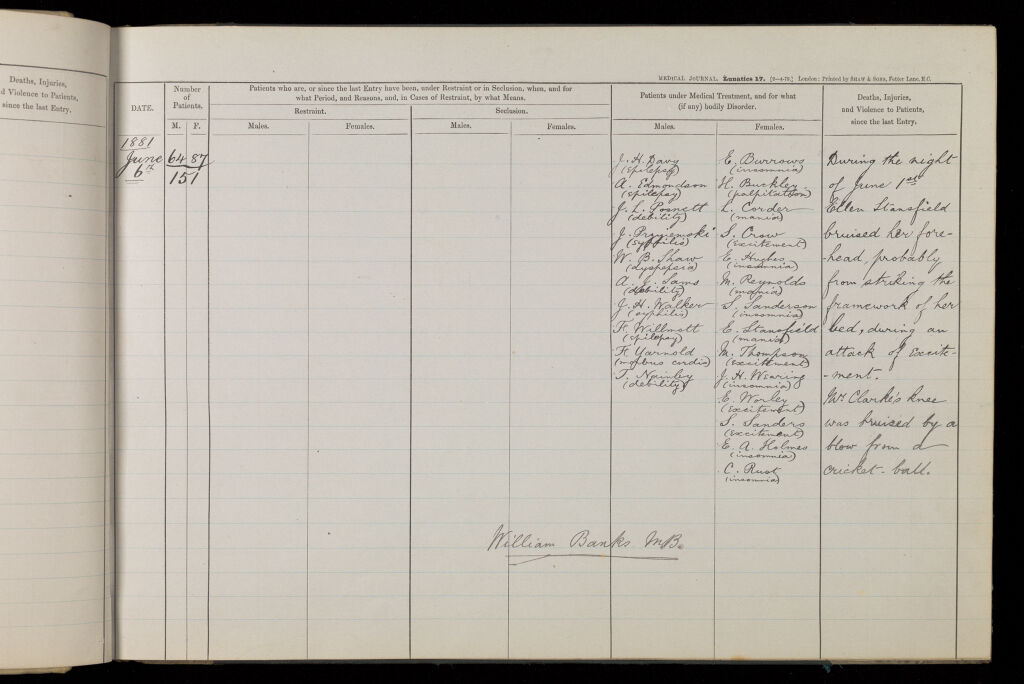 Deaths, Injuries,
d Violence to Patients,
since the last Entry.
MEDICAL JOURNAL. Lunatics 17. [2—4-79.] London: Printed by SHAW & SONS, Fetter Lane, E.C.
DATE.
Number
of
Patients.
M. F.
Patients who are, or since the last Entry have been, under Restraint or in Seclusion, when, and for
what Period, and Reasons, and, in Cases of Restraint, by what Means.
Restraint.
Seclusion.
Males.
Females.
Males.
Females.
Patients under Medical Treatment, and for what
(if any) bodily Disorder.
Males.
Females.
Deaths, Injuries,
and Violence to Patients,
since the last Entry.
1881
June
6th
64 87
151
J. H. Davy
(epilepsy)
A. Edmondson
(epilepsy)
J. L. Gosnett
(debility)
J.
(syphilis)
W. B. Shaw
(dyspepsia)
A. J. Sams
(debility)
J. H. Walker
(syphilis)
F. Willmott
(epilepsy)
F. Yarnold
(morbus cordis)
T.
(debility)
E. Burrows
(insomnia)
H. Buckley
(palpitation)
L. Corder
(mania)
S. Crow
(excitement)
E. Hughes
(insomnia)
M. Reynolds
(mania)
S. Sanderson
(insomnia)
E. Stansfield
(mania)
M. Thompson
(excitement)
J. H. Wearing
(insomnia)
E. Worley
(excitement)
S. Sanders
(excitement)
E. A. Holmes
(insomnia)
C. Rust
(insomnia)
During the night
of June 1st
Ellen Stansfield
bruised her fore-
-head, probably
from striking the
framework of her
bed, during an
attack of Excite-
-ment.
Mr Clarke's knee
was bruised by a
blow from a
cricket-ball.
William Banks MB.